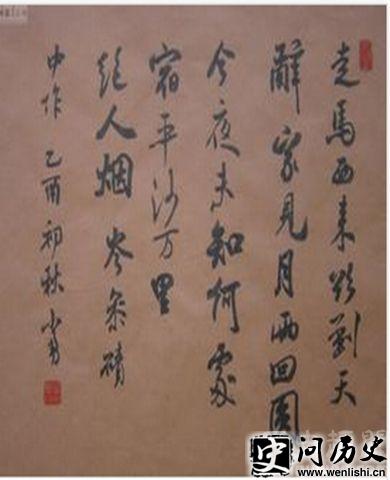 走馬西来欲到天
辭家見月两回圓
今夜未知何處
宿平沙万里
絕人烟岑參磧
中作 乙酉初秋
问历史
www.wenlishi.cn